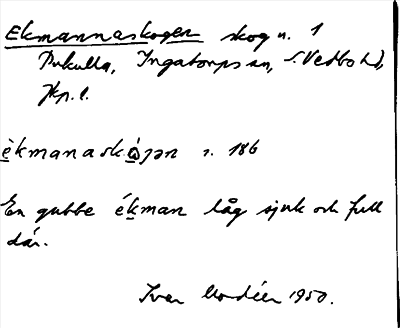 Ekmannaskogen skog n. 1
Pukulla, Ingatorps sn, S. Vedbo hd,
Jkp. l.
èkmanaskó̱gən s. 186
En gubbe ékman låg sjuk och full
där.
Ivar Modéer 1950.